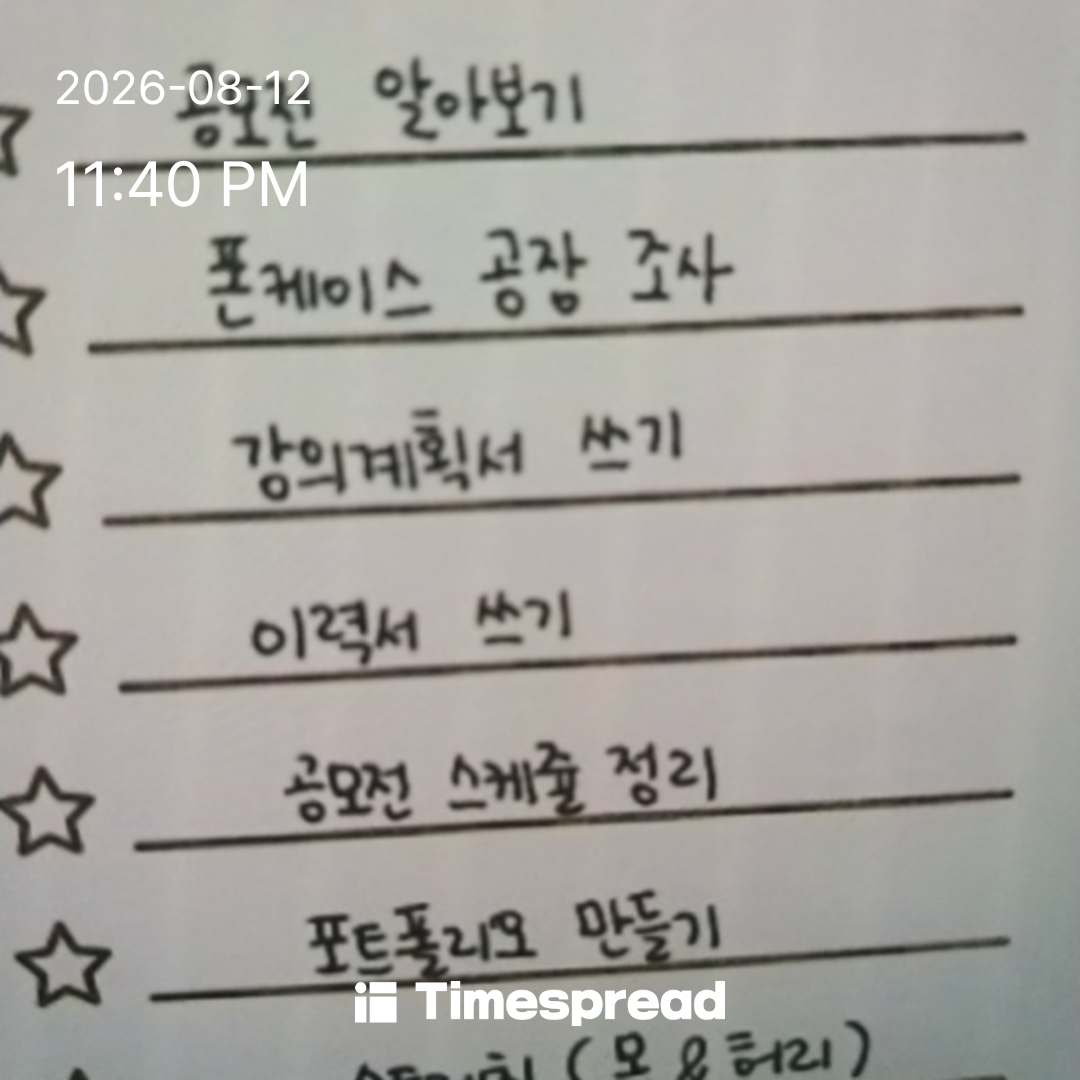 2026-08-12
공모전 알아보기
11:40 PM
폰케이스 공장 조사
강의계획서 쓰기
이력서 쓰기
공모전 스케쥴 정리
포트폴리오 만들기
Timespread
(목 & 허리)